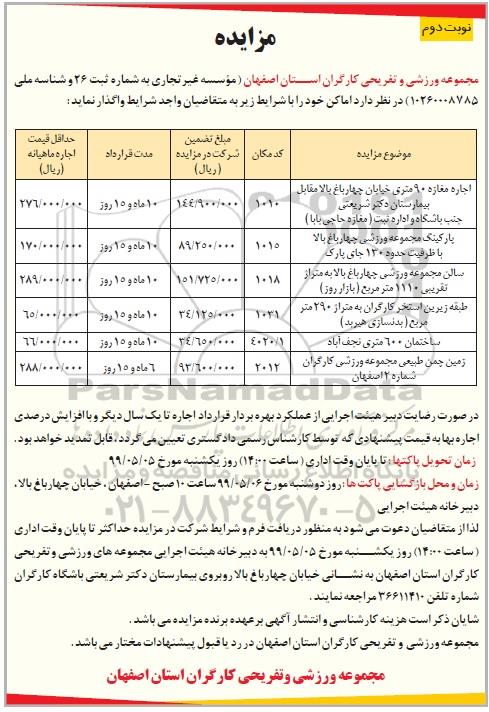 نوبت دوم
مزایده
مجموعه ورزشی و تفریحی کارگران اســتان اصفهان ( مؤسسه غیر تجاری به شماره ثبت ۲۶ و شناسه ملی
۱۰۲۶۰۰۰۸۷۸۵) در نظر دارد اماکن خود را با شرایط زیر به متقاضیان واجد شرایط واگذار نماید :
موضوع مزایده
کد مکان
مبلغ تضمین شرکت در مزایده (ریال)
مدت قرارداد
حداقل قیمت اجاره ماهیانه (ریال)
اجاره مغازه ۹۰ متری خیابان چهارباغ بالا مقابل
بیمارستان دکتر شریعتی
جنب باشگاه و اداره ثبت ( مغازه حاجی بابا )
۱۰۱۰
۱۴۴/۹۰۰/۰۰۰
۱۰ ماه و ۱۵ روز
۲۷۶/۰۰۰/۰۰۰
پارکینگ مجموعه ورزشی چهارباغ بالا
با ظرفیت حدود ۱۳۰ جای پارک
۱۰۱۵
۸۹/۲۵۰/۰۰۰
۱۰ ماه و ۱۵ روز
۱۷۰/۰۰۰/۰۰۰
سالن مجموعه ورزشی چهارباغ بالا به متراژ
تقریبی ۱۱۱۰ متر مربع ( بازار روز )
۱۰۱۸
۱۵۱/۷۲۵/۰۰۰
۱۰ ماه و ۱۵ روز
۲۸۹/۰۰۰/۰۰۰
طبقه زیرین استخر کارگران به متراژ ۲۹۰ متر
مربع ( بدنسازی هیربد )
۱۰۳۱
۳۴/۱۲۵/۰۰۰
۱۰ ماه و ۱۵ روز
۶۵/۰۰۰/۰۰۰
ساختمان ۶۰۰ متری نجف آباد
۴۰۲۰/۱
۳۴/۶۵۰/۰۰۰
۱۰ ماه و ۱۵ روز
۶۶/۰۰۰/۰۰۰
زمین چمن طبیعی مجموعه ورزشی کارگران
شماره ۲ اصفهان
۲۰۱۲
۹۳/۶۰۰/۰۰۰
۶ ماه و ۱۵ روز
۲۸۸/۰۰۰/۰۰۰
ParsNamadData
در صورت رضایت دبیر هیئت اجرایی از عملکرد بهره بردار قرارداد اجاره تا یک سال دیگر و با افزایش درصدی
اجاره بها به قیمت پیشنهادی که توسط کارشناس رسمی دادگستری تعیین می گردد، قابل تمدید خواهد بود.
زمان تحویل پاکتها : تا پایان وقت اداری ( ساعت ۱۴:۰۰) روز یکشنبه مورخ ۹۹/۰۵/۰۵
زمان و محل بازگشایی پاکت ها : روز دوشنبه مورخ ۹۹/۰۵/۰۶ ساعت ۱۰ صبح - اصفهان ، خیابان چهارباغ بالا،
دبیرخانه هیئت اجرایی
۰۲۱-۸۸۳۴۹۶۷۰-۵
لذا از متقاضیان دعوت می شود به منظور دریافت فرم و شرایط شرکت در مزایده حداکثر تا پایان وقت اداری
( ساعت ۱۴:۰۰ ) روز یکشـــنبه مورخ ۹۹/۰۵/۰۵ به دبیرخانه هیئت اجرایی مجموعه های ورزشی و تفریحی
کارگران استان اصفهان به نشــانی خیابان چهارباغ بالا روبروی بیمارستان دکتر شریعتی باشگاه کارگران
شماره تلفن ۳۶۶۱۱۴۱۰ مراجعه نمایند .
شایان ذکر است هزینه کارشناسی و انتشار آگهی برعهده برنده مزایده می باشد .
مجموعه ورزشی و تفریحی کارگران استان اصفهان در رد یا قبول پیشنهادات مختار می باشد .
مجموعه ورزشی و تفریحی کارگران استان اصفهان